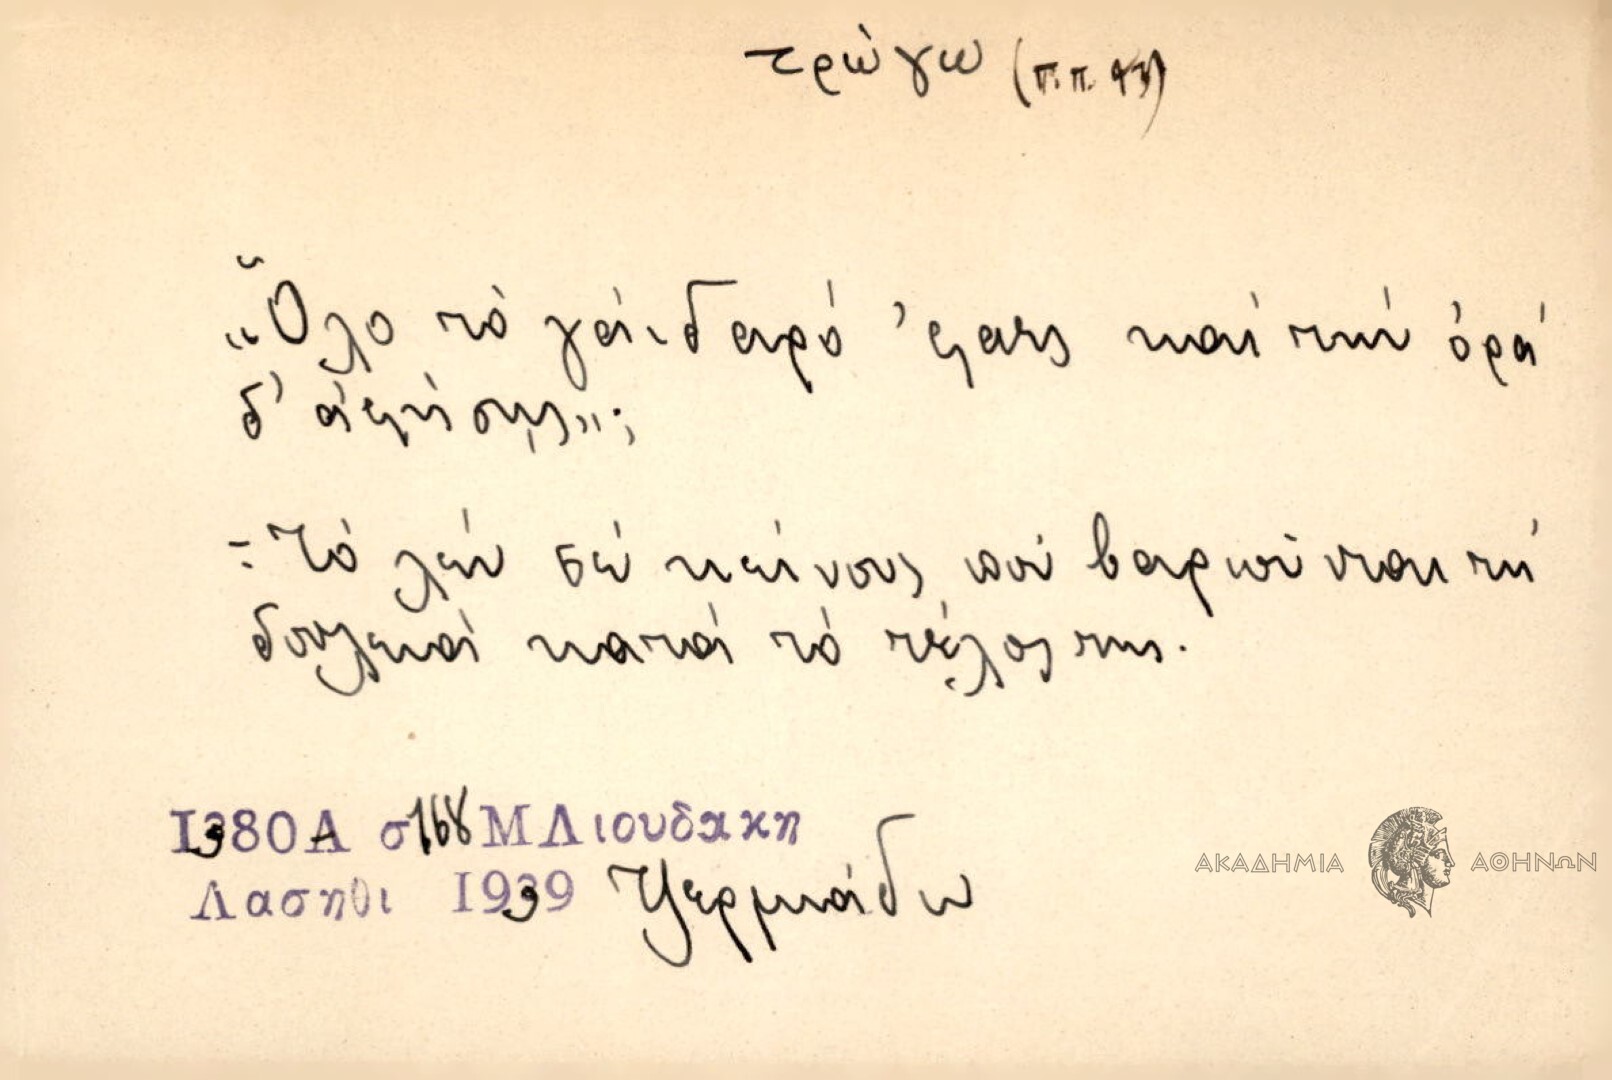 τρώγω (π.π. 43)
„Όλο το γάιδαρό 'φαες και την όρά
δ' άφήσης”;
÷ Τό λέν σέ κείνους πού βαριούνται τή
δουλειά κατά τό τέλος της.
1380Α σ168 Μ Λιουδακη
Λασηθι 1939 Τζερμιάδω
ΑΚΑΔΗΜΙΑ ΑΘΗΝΩΝ